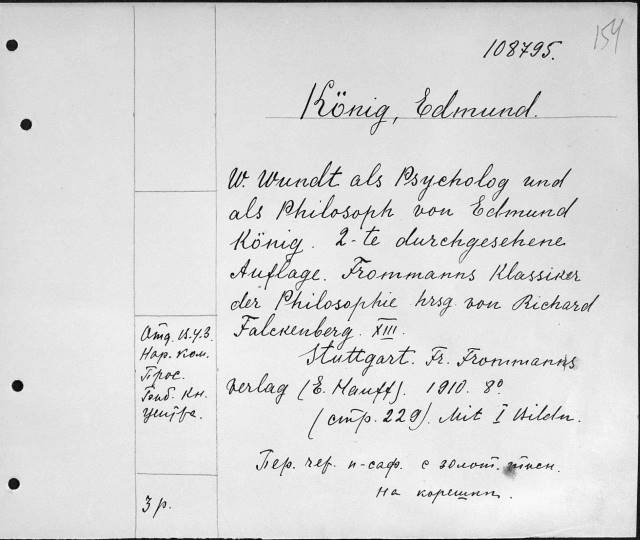 154
108795.
König, Edmund.
W. Wundt als Psycholog und
als Philosoph von Edmund
König. 2-te durchgesehene
Auflage. Frommanns Klassiker
der Philosophie hrsg. von Richard
Falckenberg. XIII.
Stuttgart. Fr. Frommanns
Verlag (E. Hauff). 1910. 8º
(стр. 229). Mit I Bildn.
Пер. чер. п-саф. с золот. тисн.
на корешки.
Отд. В.У.З.
Нар. ком.
Прос.
Гл. Кн.
3 р.